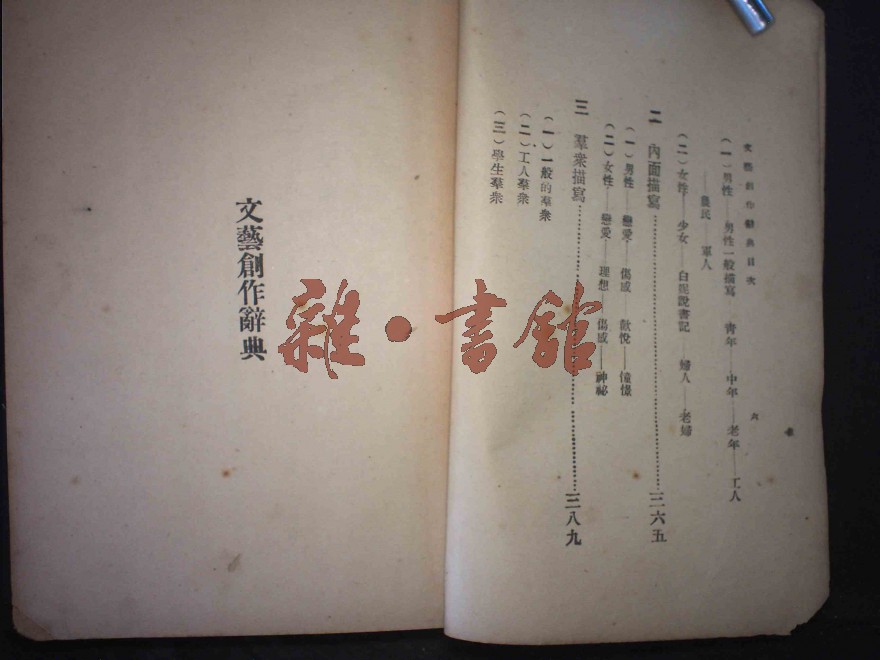 文藝創作辭典目次
六
(一)男性——男性一般描寫——青年——中年——老年——工人
——農民——軍人
(二)女性——少女——白妮說書記——婦人——老婦
二 內面描寫……三六五
(一)男性——戀愛——傷感——歡悅——憧憬
(二)女性——戀愛——理想——傷感——神祕
三 羣衆描寫……三八九
(一)一般的羣衆
(二)工人羣衆
(三)學生羣衆
文藝創作辭典
雜·書館